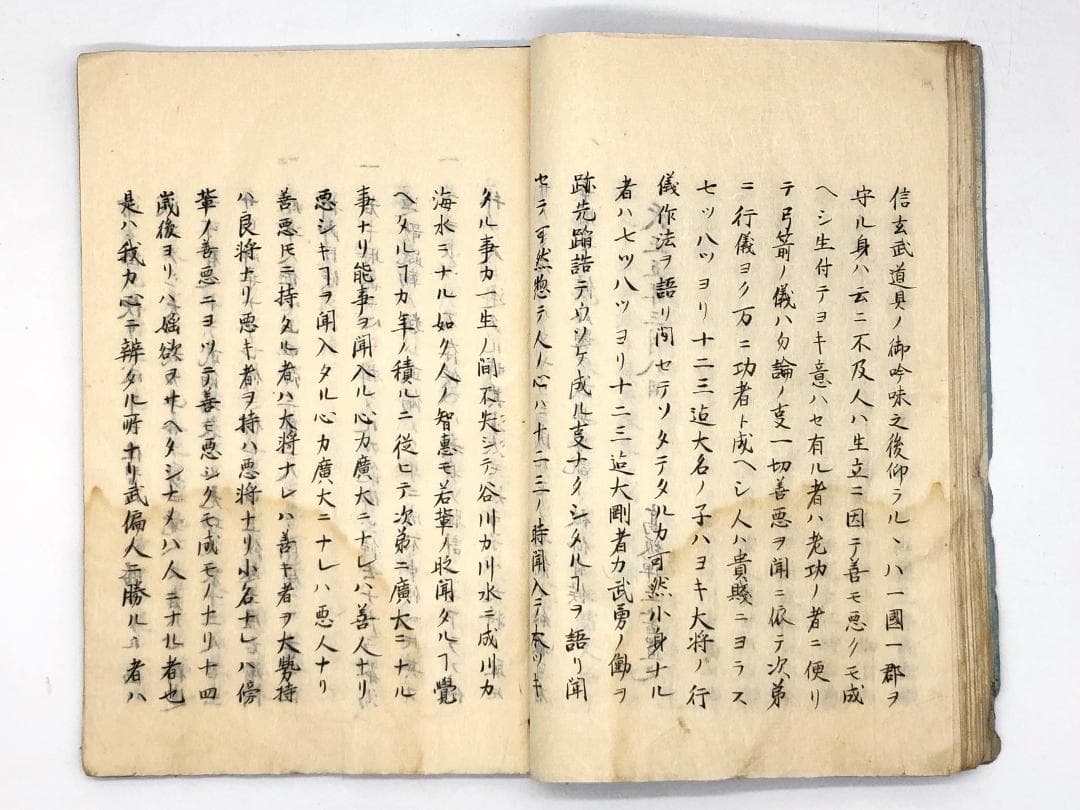 信玄武道具ノ御吟味之後仰ラルヽハ一國一郡ヲ
守ル身ハ云ニ不及人ハ生立ニ因テ善モ悪クモ成
ヘシ生付テヨキ意ハセ有ル者ハ老功ノ者ニ便リ
テ弓箭ノ儀ハ勿論ノ支一切善悪ヲ聞ニ依テ次第
ニ行儀ヨク万ニ功者ト成ヘシ人ハ貴賤ニヨラス
七ツ八ツヨリ十二三迠大名ノ子ハヨキ大将ノ行
儀作法ヲ語リ聞セテソタテタルカ可然小身ナル
者ハ七ツ八ツヨリ十二三迠大剛者カ武勇ノ働ヲ
跡先蹈誥テウソケ成ル支ナクシタルヿヲ語リ聞
セテ可然惣テ人ノ心ハ十二三ノ時聞入テ本ツキ
タル事カ一生ノ間不失シテ谷川カ川水ニ成川カ
海水ニナル如ク人ノ智惠モ若輩ノ時聞タルヿ覺
ヘタルヿカ年ノ積ルニ從ヒテ次第ニ廣大ニナル
事ナリ能事ヲ聞入ル心カ廣大ニナレハ善人ナリ
悪シキヿヲ聞入タル心カ廣大ニナレハ悪人ナリ
善悪𪜈ニ持タル者ハ大将ナレハ善キ者ヲ大勢持
ハ良将ナリ悪キ者ヲ持ハ悪将ナリ小名ナレハ傍
輩ノ善悪ニヨツテ善モ悪シクモ成モノナリ十四
歳後ヨリハ婬欲ヲサヘタシナメハ人ニナル者也
是ハ我カ心ニ辨タル所ナリ武偏人ニ勝ルヽ者ハ